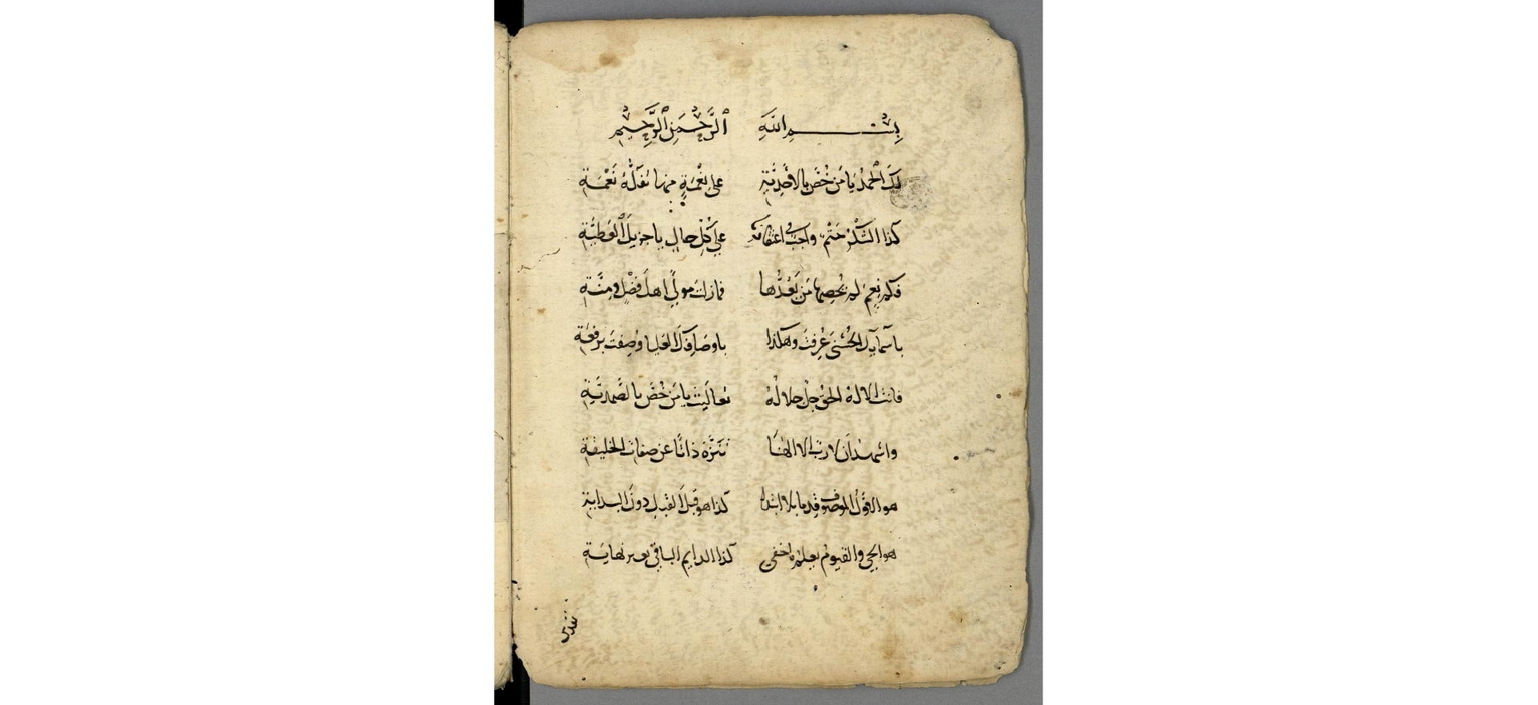 بِسْمِ اللهِ الرَّحْمَنِ الرَّحِيمِ
لكَ الحَمْدُ يا مَن خُصَّ بالاقدميّة على نِعْمَةٍ منها
كذا الشكرُ حَتْمٌ واجب في على كُلِّ حالٍ يا جزيلَ العَطيَّةِ
فكم نِعَمٍ لم يُحصِها مَن يَعُدُّها فما زلتَ مولًى اهلَ فضْلٍ ومِنَّةِ
باسمايك الحُسْنى عُرِفتَ وهكذا باوصافِكَ العليا وُصِفتَ برفعَةِ
فانت الاله الحقُّ جلّ جلالُهُ تعاليت يا مَن خُصَّ بالصَّمديّةِ
واشهدُ أن لا ربّ الا الهُنَا تنَزَّه ذاتًا عن صفات الخليقة
هو الاوّلُ الموصوف قدما بلا ابتدا كذا هو قبلَ القبل دونَ البداية
هو الحي والقيوم يعلم ما خفي كذا الدايم الباقي بغير نهاية